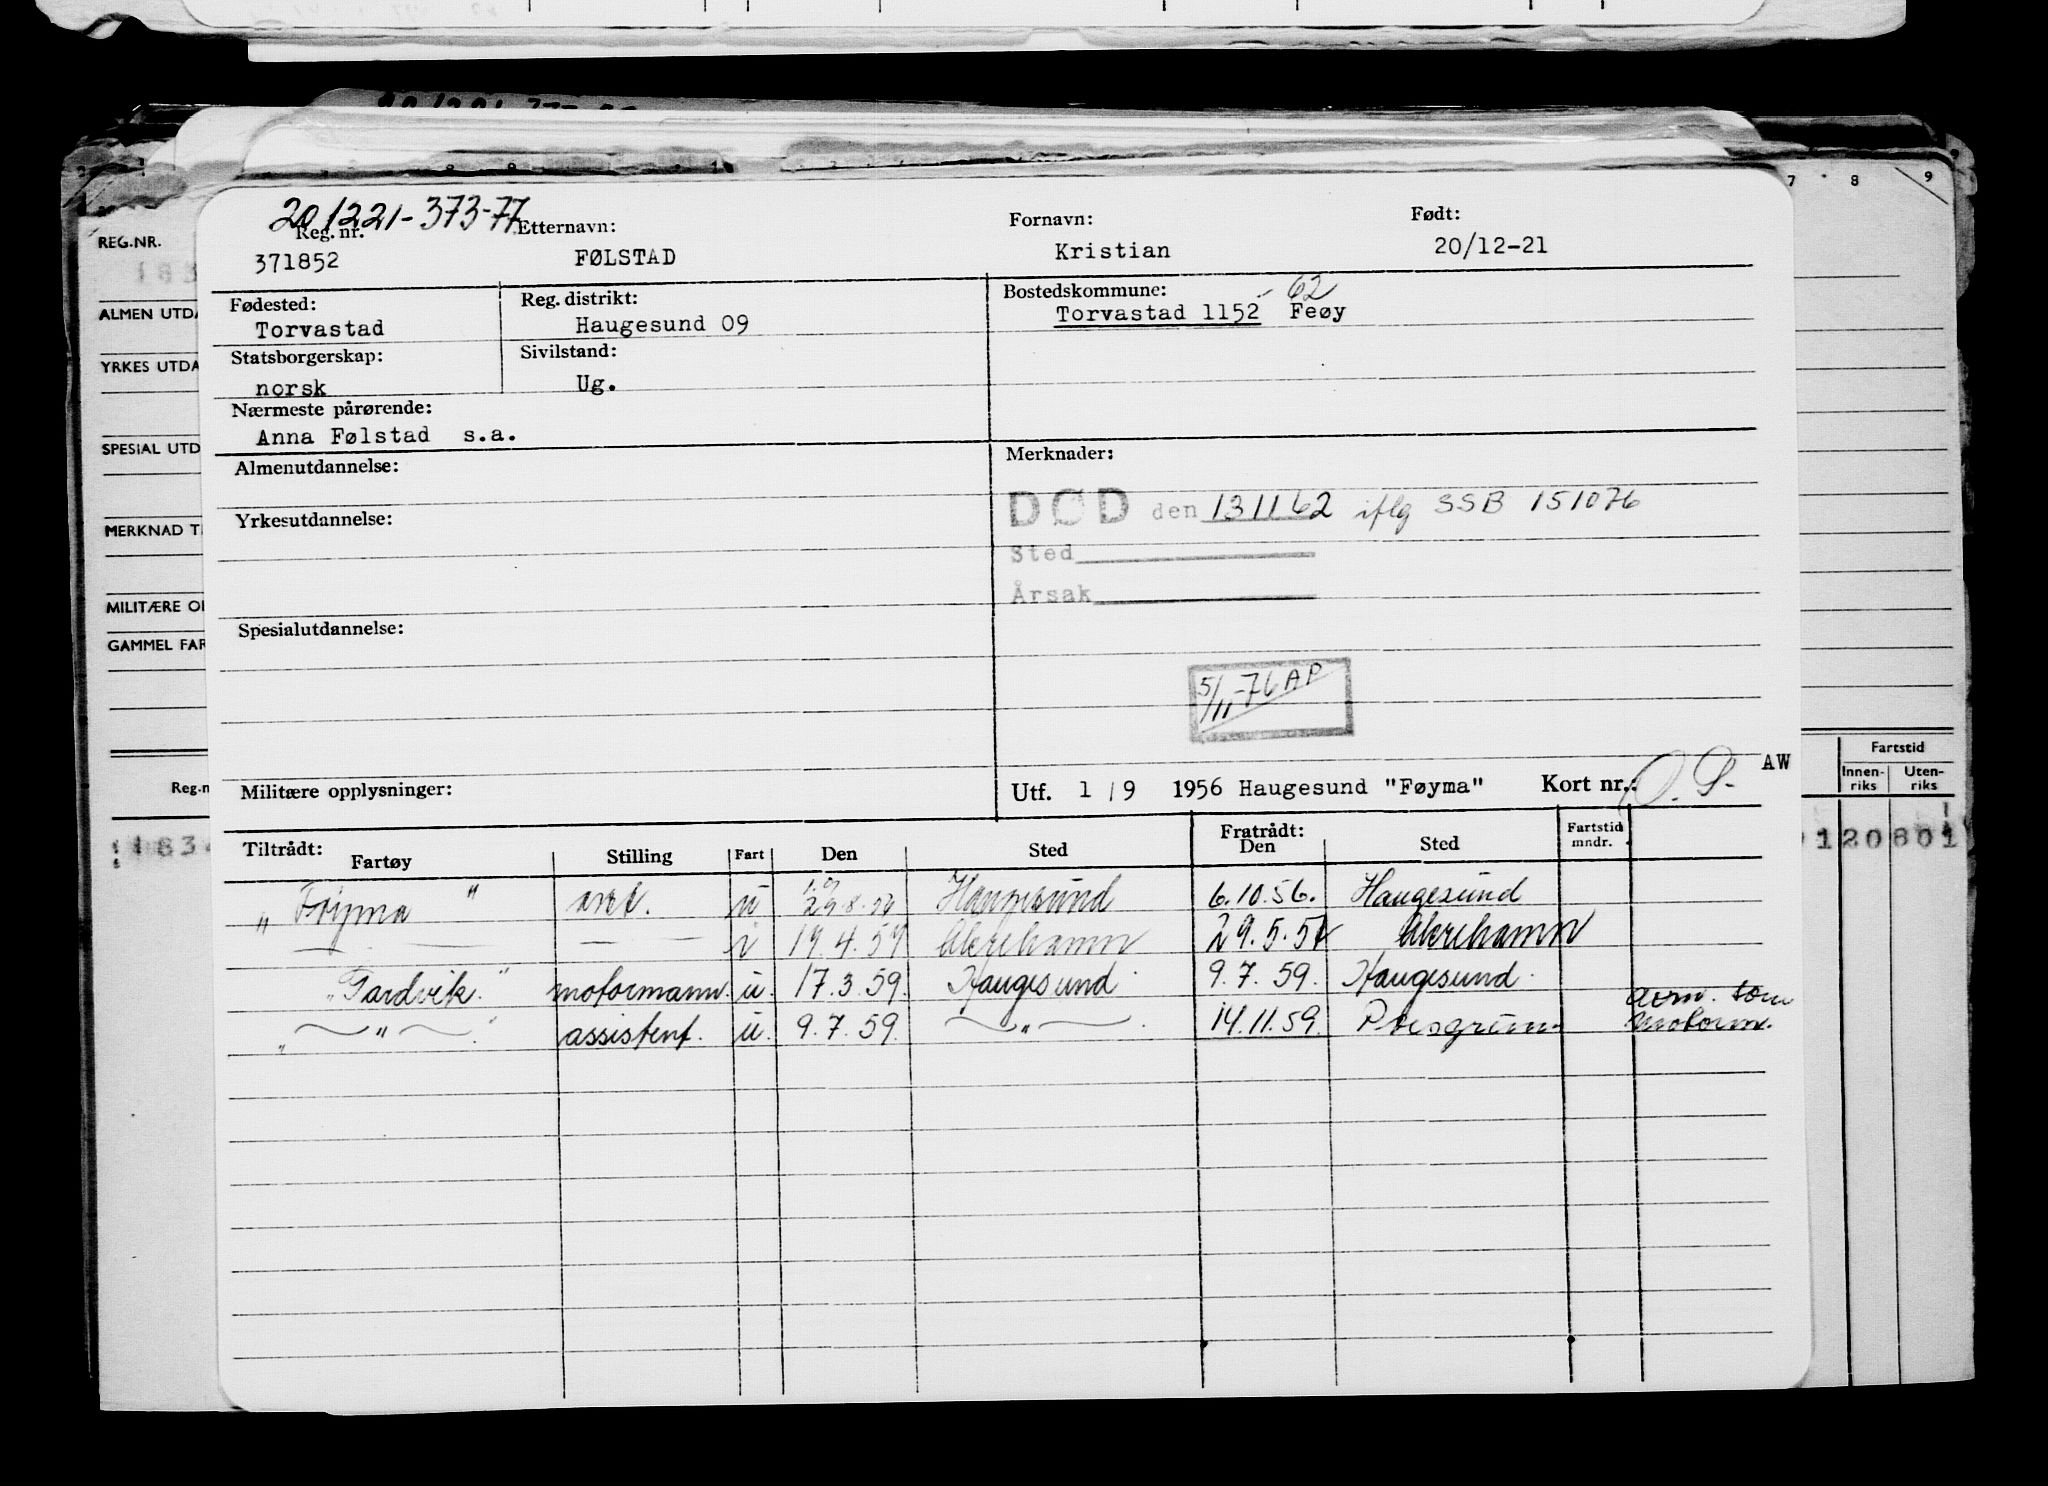 201221-373-77
Reg. nr. Etternavn: Fornavn: Født:
371852 FØLSTAD Kristian 20/12-21
Fødested: Reg. distrikt: Bostedskommune: 62
Torvastad Haugesund 09 Torvastad 1152 Feøy
Statsborgerskap: Sivilstand:
norsk Ug.
Nærmeste pårørende:
Anna Følstad s.a.
Almenutdannelse: Merknader:
DØD den 131162 iflg SSB 151076
Yrkesutdannelse:
Sted
Årsak
Spesialutdannelse:
5/11-76 AP
Militære opplysninger: Utf. 1/9 1956 Haugesund "Føyma" Kort nr.: AW
Tiltrådt: Fratrådt: Fartstid
Fartøy Stilling Fart Den Sted Den Sted mndr.
" Föyma " u 29.8.56 Haugesund 6.10.56. Haugesund
— — i 19.4.57 Åkrehamn 29.5.57 Åkrehamn
"Gardvik." motormann. u. 17.3.59. Haugesund 9.7.59. Haugesund.
" — " — " assistent. u. 9.7.59. — " — 14.11.59. Porsgrunn. som motorm.
REG.NR.
ALMEN UTDA
YRKES UTDA
SPESIAL UTD
MERKNAD T
MILITÆRE O
GAMMEL FAR
Reg.n
7 8 9
Fartstid
Innen-riks Uten-riks
120801